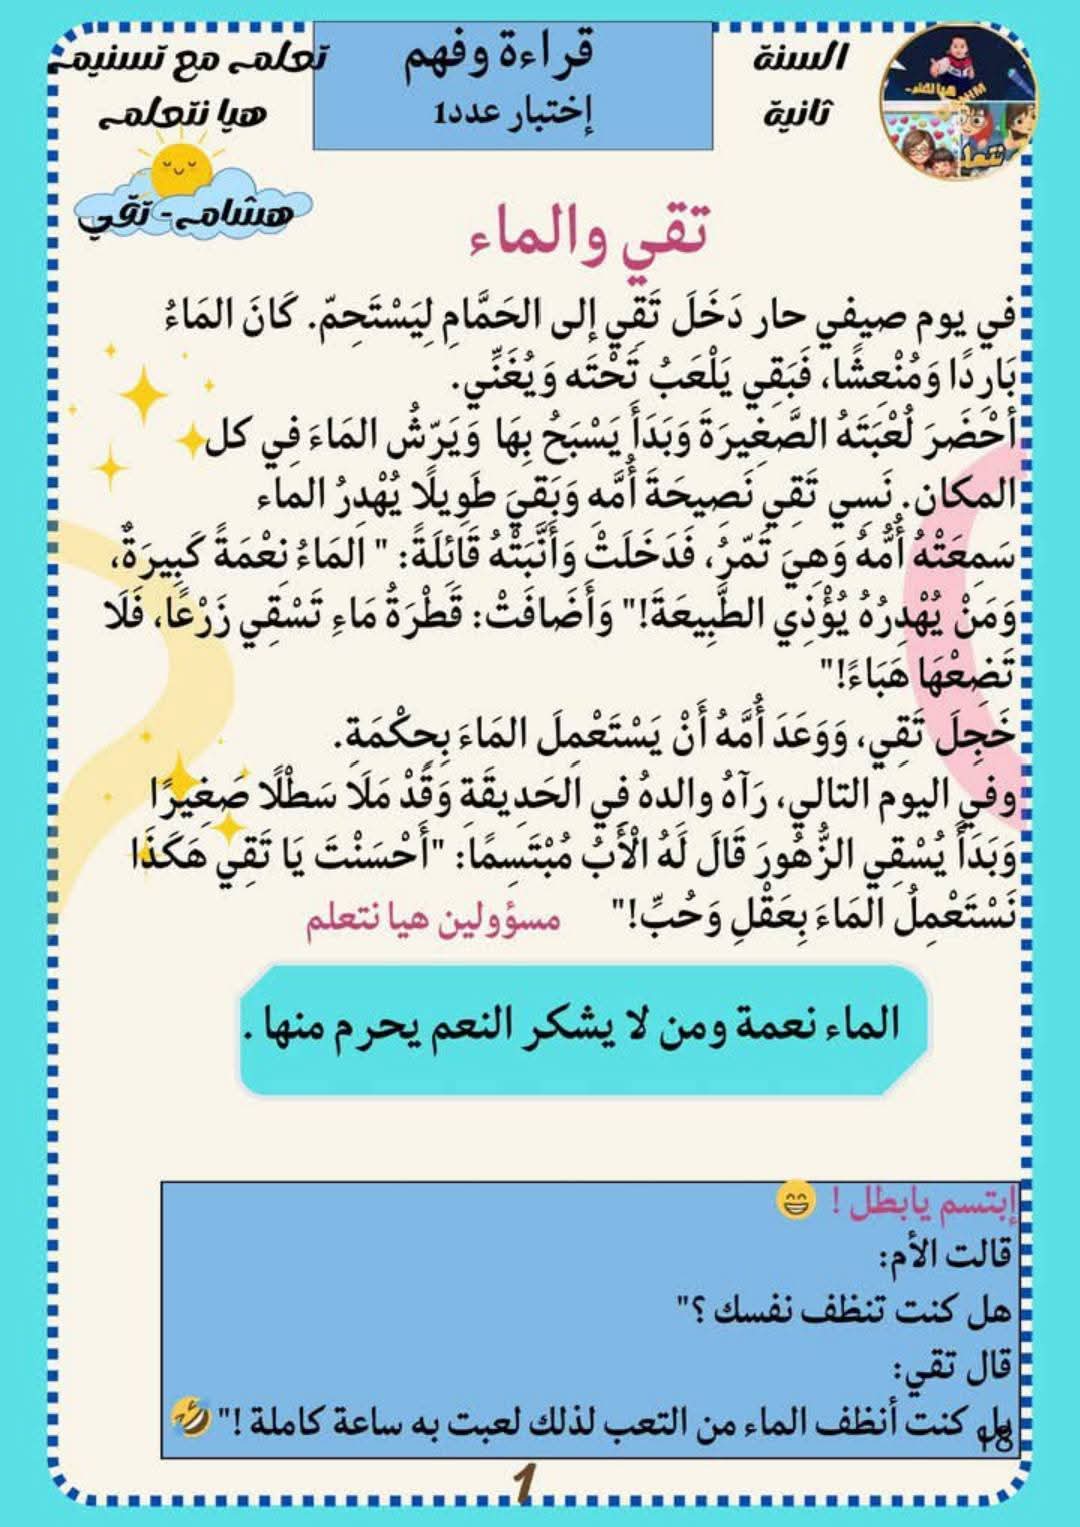 السنة
ثانية
قراءة وفهم
إختبار عدد1
تعلم مع تسنيم
هيا نتعلم
هشام - تقي
تقي والماء
في يوم صيفي حار دَخَلَ تَقِي إلى الحَمَّامِ لِيَسْتَحِمّ. كَانَ المَاءُ
بَارِدًا وَمُنْعِشًا، فَبَقِي يَلْعَبُ تَحْتَه وَيُغَنِّي.
أحْضَرَ لُعْبَتَهُ الصَّغِيرَةَ وَبَدَأَ يَسْبَحُ بِهَا وَيَرّشُ المَاءَ فِي كل
المكان. نَسِي تَقِي نَصِيحَةَ أُمَّه وَبَقيَ طَوِيلًا يُهْدِرُ الماء
سَمِعَتْهُ أُمُّهُ وَهِيَ تَمّرُ، فَدَخَلَتْ وَأَنَّبَتْهُ قَائلَةً: " المَاءُ نعْمَةً كَبِيرَةٌ،
وَمَنْ يُهْدِرُهُ يُؤْذِي الطَّبِيعَةَ!" وَأَضَافَتْ: قَطْرَةُ مَاءٍ تَسْقِي زَرْعًا، فَلَا
تَضعْهَا هَبَاءً!"
خَجِلَ تَقِي، وَوَعَدَ أُمَّهُ أَنْ يَسْتَعْمِلَ المَاءَ بِحِكْمَةٍ.
وفي اليوم التالي، رَآهُ والدهُ فِي الحَدِيقَةِ وَقَدْ مَلَا سَطْلًا صَغِيرًا
وَبَدَأَ يُسْقِي الزُّهُورَ قَالَ لَهُ الْأَبُ مُبْتَسِمًا: "أَحْسَنْتَ يَا تَقِي هَكَذَا
نَسْتَعْمِلُ المَاءَ بِعَقْلٍ وَحُبٍّ!" مسؤولين هيا نتعلم
الماء نعمة ومن لا يشكر النعم يحرم منها .
إبتسم يابطل ! 😄
قالت الأم:
هل كنت تنظف نفسك ؟"
قال تقي:
بل كنت أنظف الماء من التعب لذلك لعبت به ساعة كاملة !" 🤣
18
1